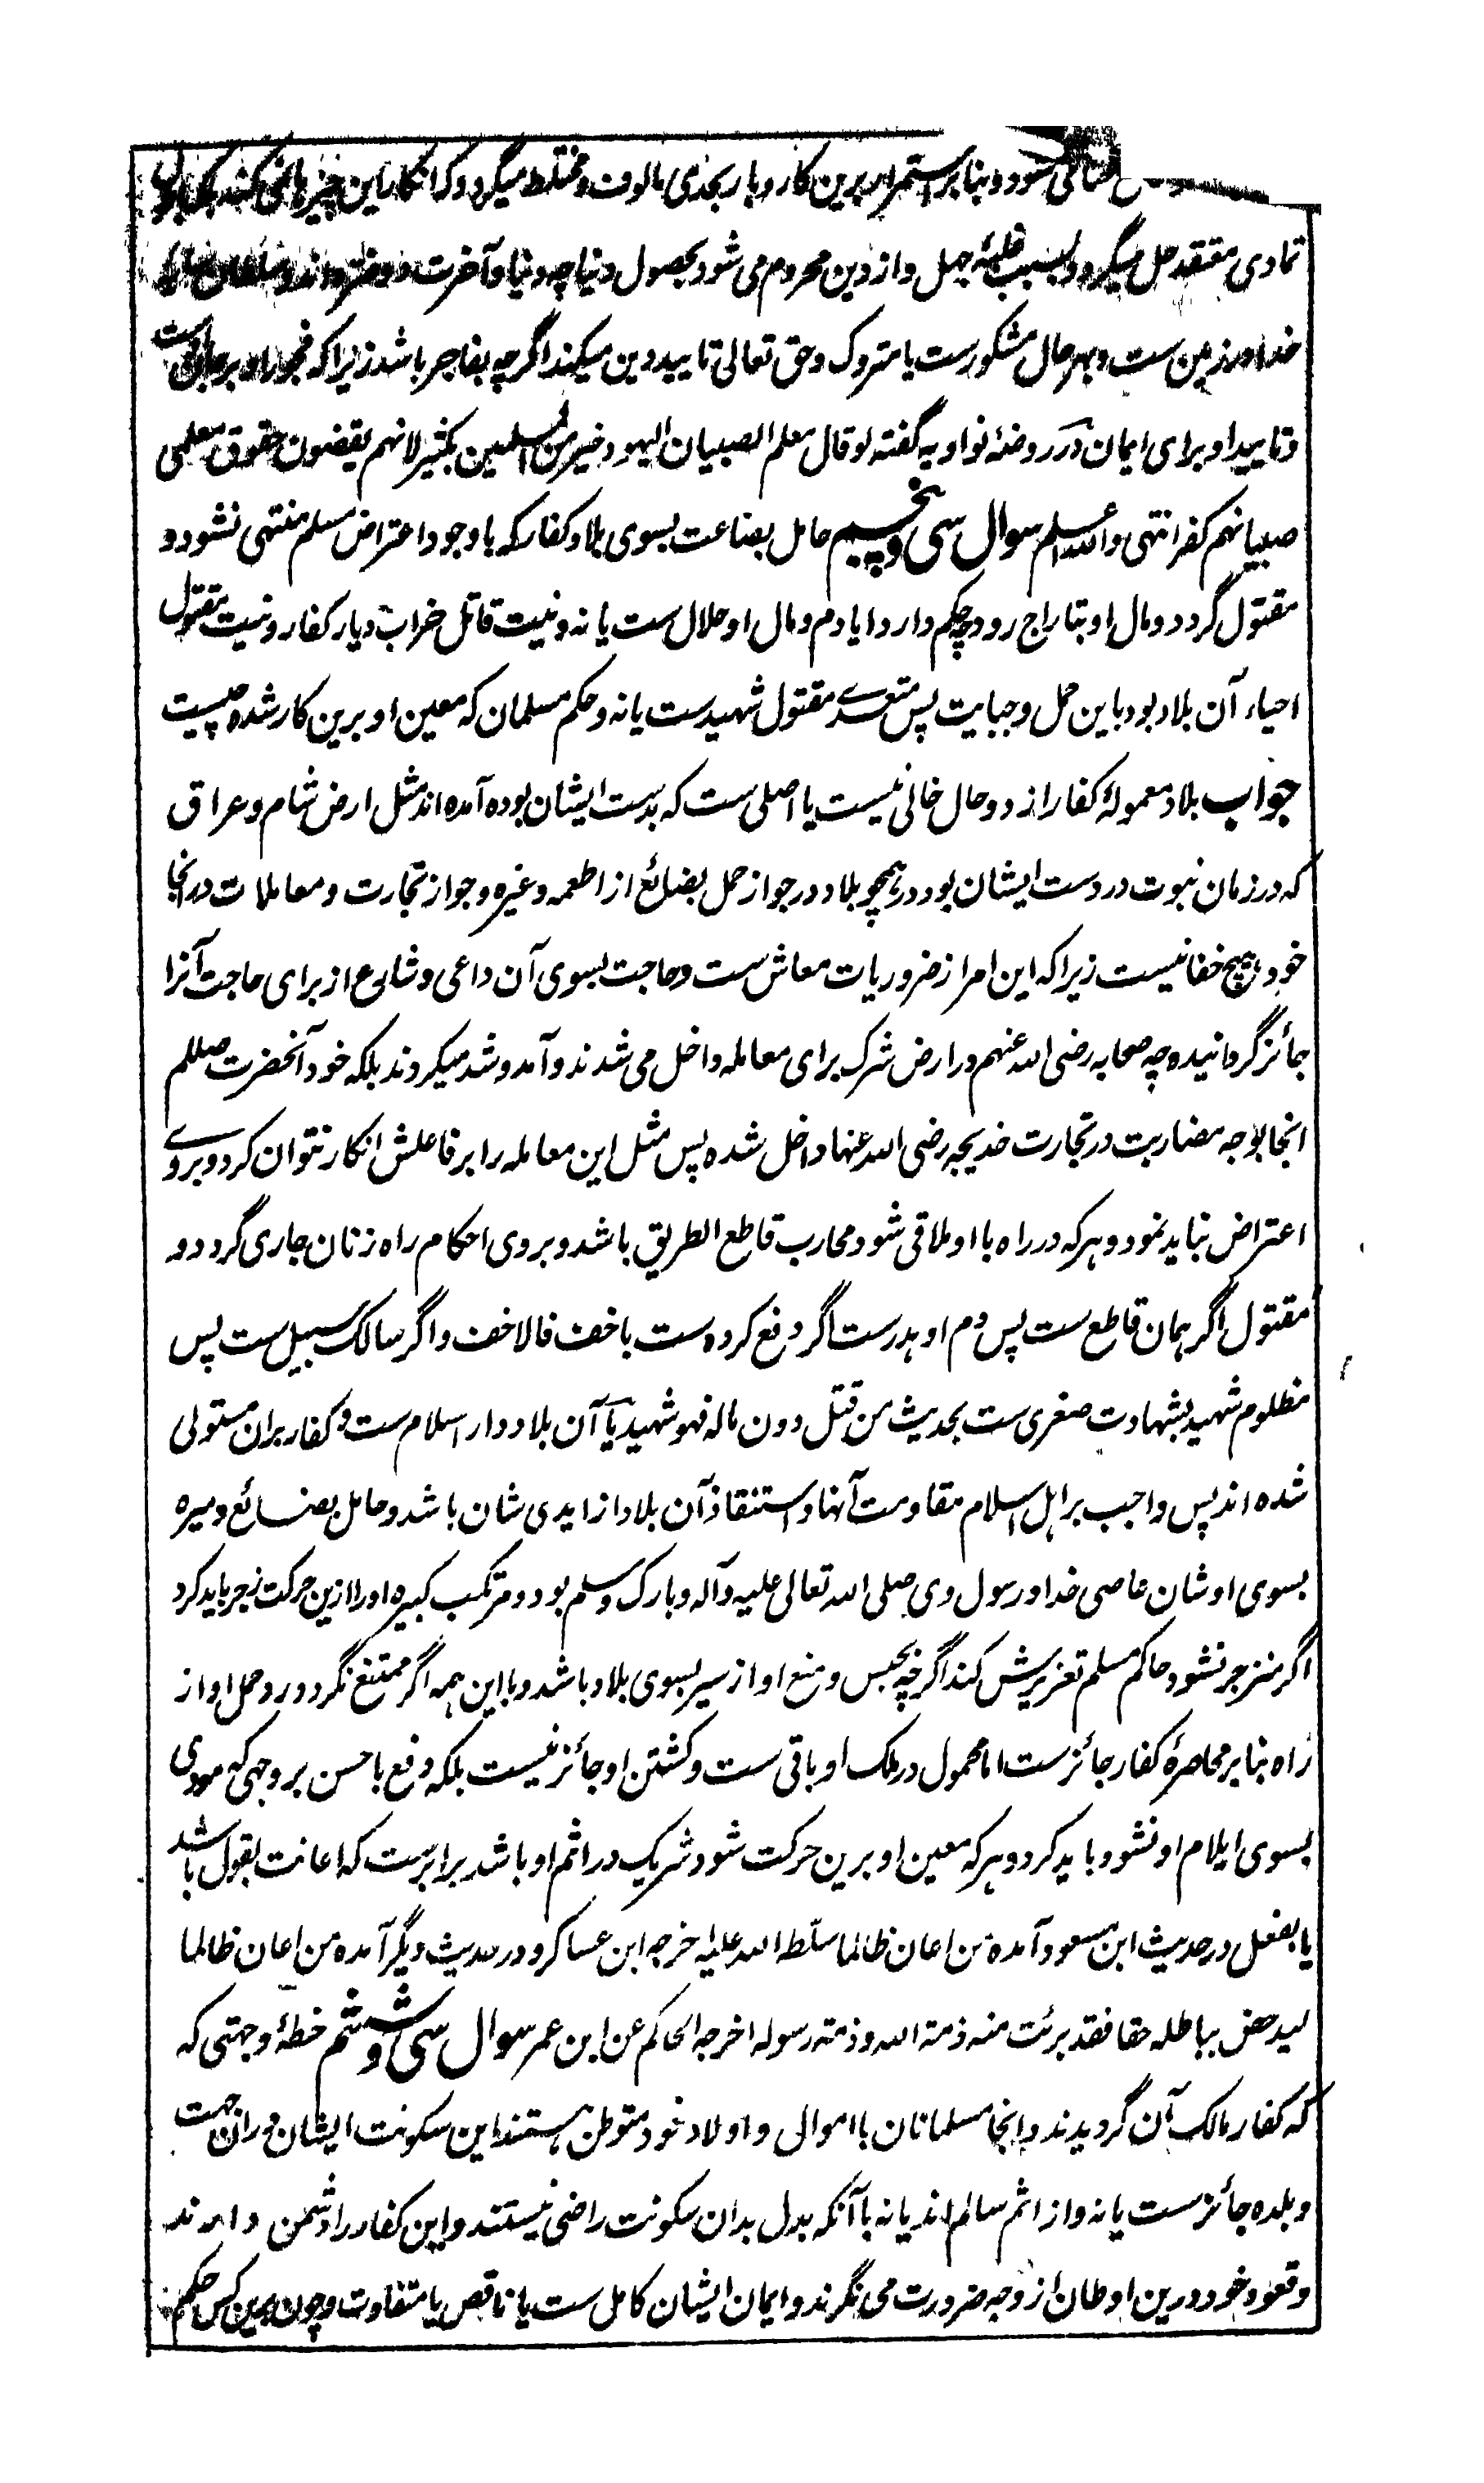 می شود و بنابر استمرار برین کاروبار بحدی مالوف و مختلط میگردد که انکار این چیزها نمی کند بلکه بطول
تمادی معتقد حل میگردد بسبب غلبهٔ جهل و از دین محروم می شود بحصول دنیا چه دنیا و آخرت دو ضره اند و سلطان
خدا در زمین ست و بهر حال مشکورست یا متروک و حق تعالی تایید دین میکند اگرچه بفاجر باشد زیرا که فجور او بر جان اوست
و تایید او برای ایمان در روضهٔ نواویه گفته لو قال معلم الصبیان الیهود خیر من المسلمین بکثیر لانهم یقضون حقوق معلمی
صبیانهم کفر انتهی والله اعلم سوال سی و پنجم حامل بضاعت بسوی بلاد کفار که باوجود اعتراض مسلم منتهی نشود و
مقتول گردد و مال او بتاراج رود چه حکم دارد ایا دم و مال او حلال ست یا نه و نیت قاتل خراب دیار کفار و نیت مقتول
احیاء آن بلاد بود باین حمل و جبایت پس متعدے مقتول شهیدست یا نه و حکم مسلمان که معین او برین کار شده چیست
جواب بلاد معمولهٔ کفار از دو حال خالی نیست یا اصلی ست که بدست ایشان بوده آمده اند مثل ارض شام و عراق
که در زمان نبوت در دست ایشان بود در همچو بلاد در جواز حمل بضائع از اطعمه و غیره و جواز تجارت و معاملات درانجا
خود هیچ خفا نیست زیرا که این امر از ضروریات معاش ست و حاجت بسوی آن داعی و شارع از برای حاجت آنرا
جائز گردانیده چه صحابه رضی الله عنهم در ارض شرک برای معامله داخل می شدند و آمد و شد میکردند بلکه خود آنحضرت صللم
انجا بوجه مضاربت در تجارت خدیجه رضی الله عنها داخل شده پس مثل این معامله را بر فاعلش انکار نتوان کرد و بروے
اعتراض نباید نمود و هرکه در راه با او ملاقی شود محارب قاطع الطریق باشد و بروی احکام راه زنان جاری گردد و
مقتول اگر همان قاطع ست پس دم او هدرست اگر دفع کرده ست باخف فالاخف و اگر سالک سبیل ست پس
مظلوم شهید بشهادت صغری ست بحدیث من قتل دون ماله فهو شهید یا آن بلاد دار اسلام ست و کفار بران مستولی
شده اند پس واجب بر اهل اسلام مقاومت آنها و استنقاذ آن بلاد از ایدی شان باشد و حامل بضائع و میره
بسوی اوشان عاصی خدا و رسول وی صلی الله تعالی علیه و آله و بارک وسلم بود و مرتکب کبیره او را ازین حرکت زجر باید کرد
اگر منزجر نشود حاکم مسلم تعزیرش کند اگرچه بحبس و منع او از سیر بسوی بلاد باشد و با این همه اگر ممتنع نگردد رد حمل او از
راه بنابر محاصرهٔ کفار جائزست اما محمول در ملک او باقی ست و کشتن او جائز نیست بلکه دفع باحسن بر وجهی که مودی
بسوی ایلام او نشود باید کرد و هرکه معین او برین حرکت شود شریک در اثم او باشد برابرست که اعانت بقول باشد
یا بفعل در حدیث ابن مسعود آمده من اعان ظالما سلّطه الله علیه اخرجه ابن عساکر و در حدیث دیگر آمده من اعان ظالما
لیدحض بباطله حقا فقد برئت منه ذمة الله و ذمة رسوله اخرجه الحاکم عن ابن عمر سوال سی و ششم خطهٔ و جهتی که
که کفار مالک آن گردیدند و انجا مسلمانان با اموالی و اولاد خود متوطن هستند این سکونت ایشان دران جهت
و بلده جائزست یا نه و از اثم سالم اند یا نه با آنکه بدل بدان سکونت راضی نیستند و این کفار را دشمن دارند
و قعود خود درین اوطان از وجه ضرورت می نگرند و ایمان ایشان کامل ست یا ناقص یا متفاوت و چون برین کس حکم